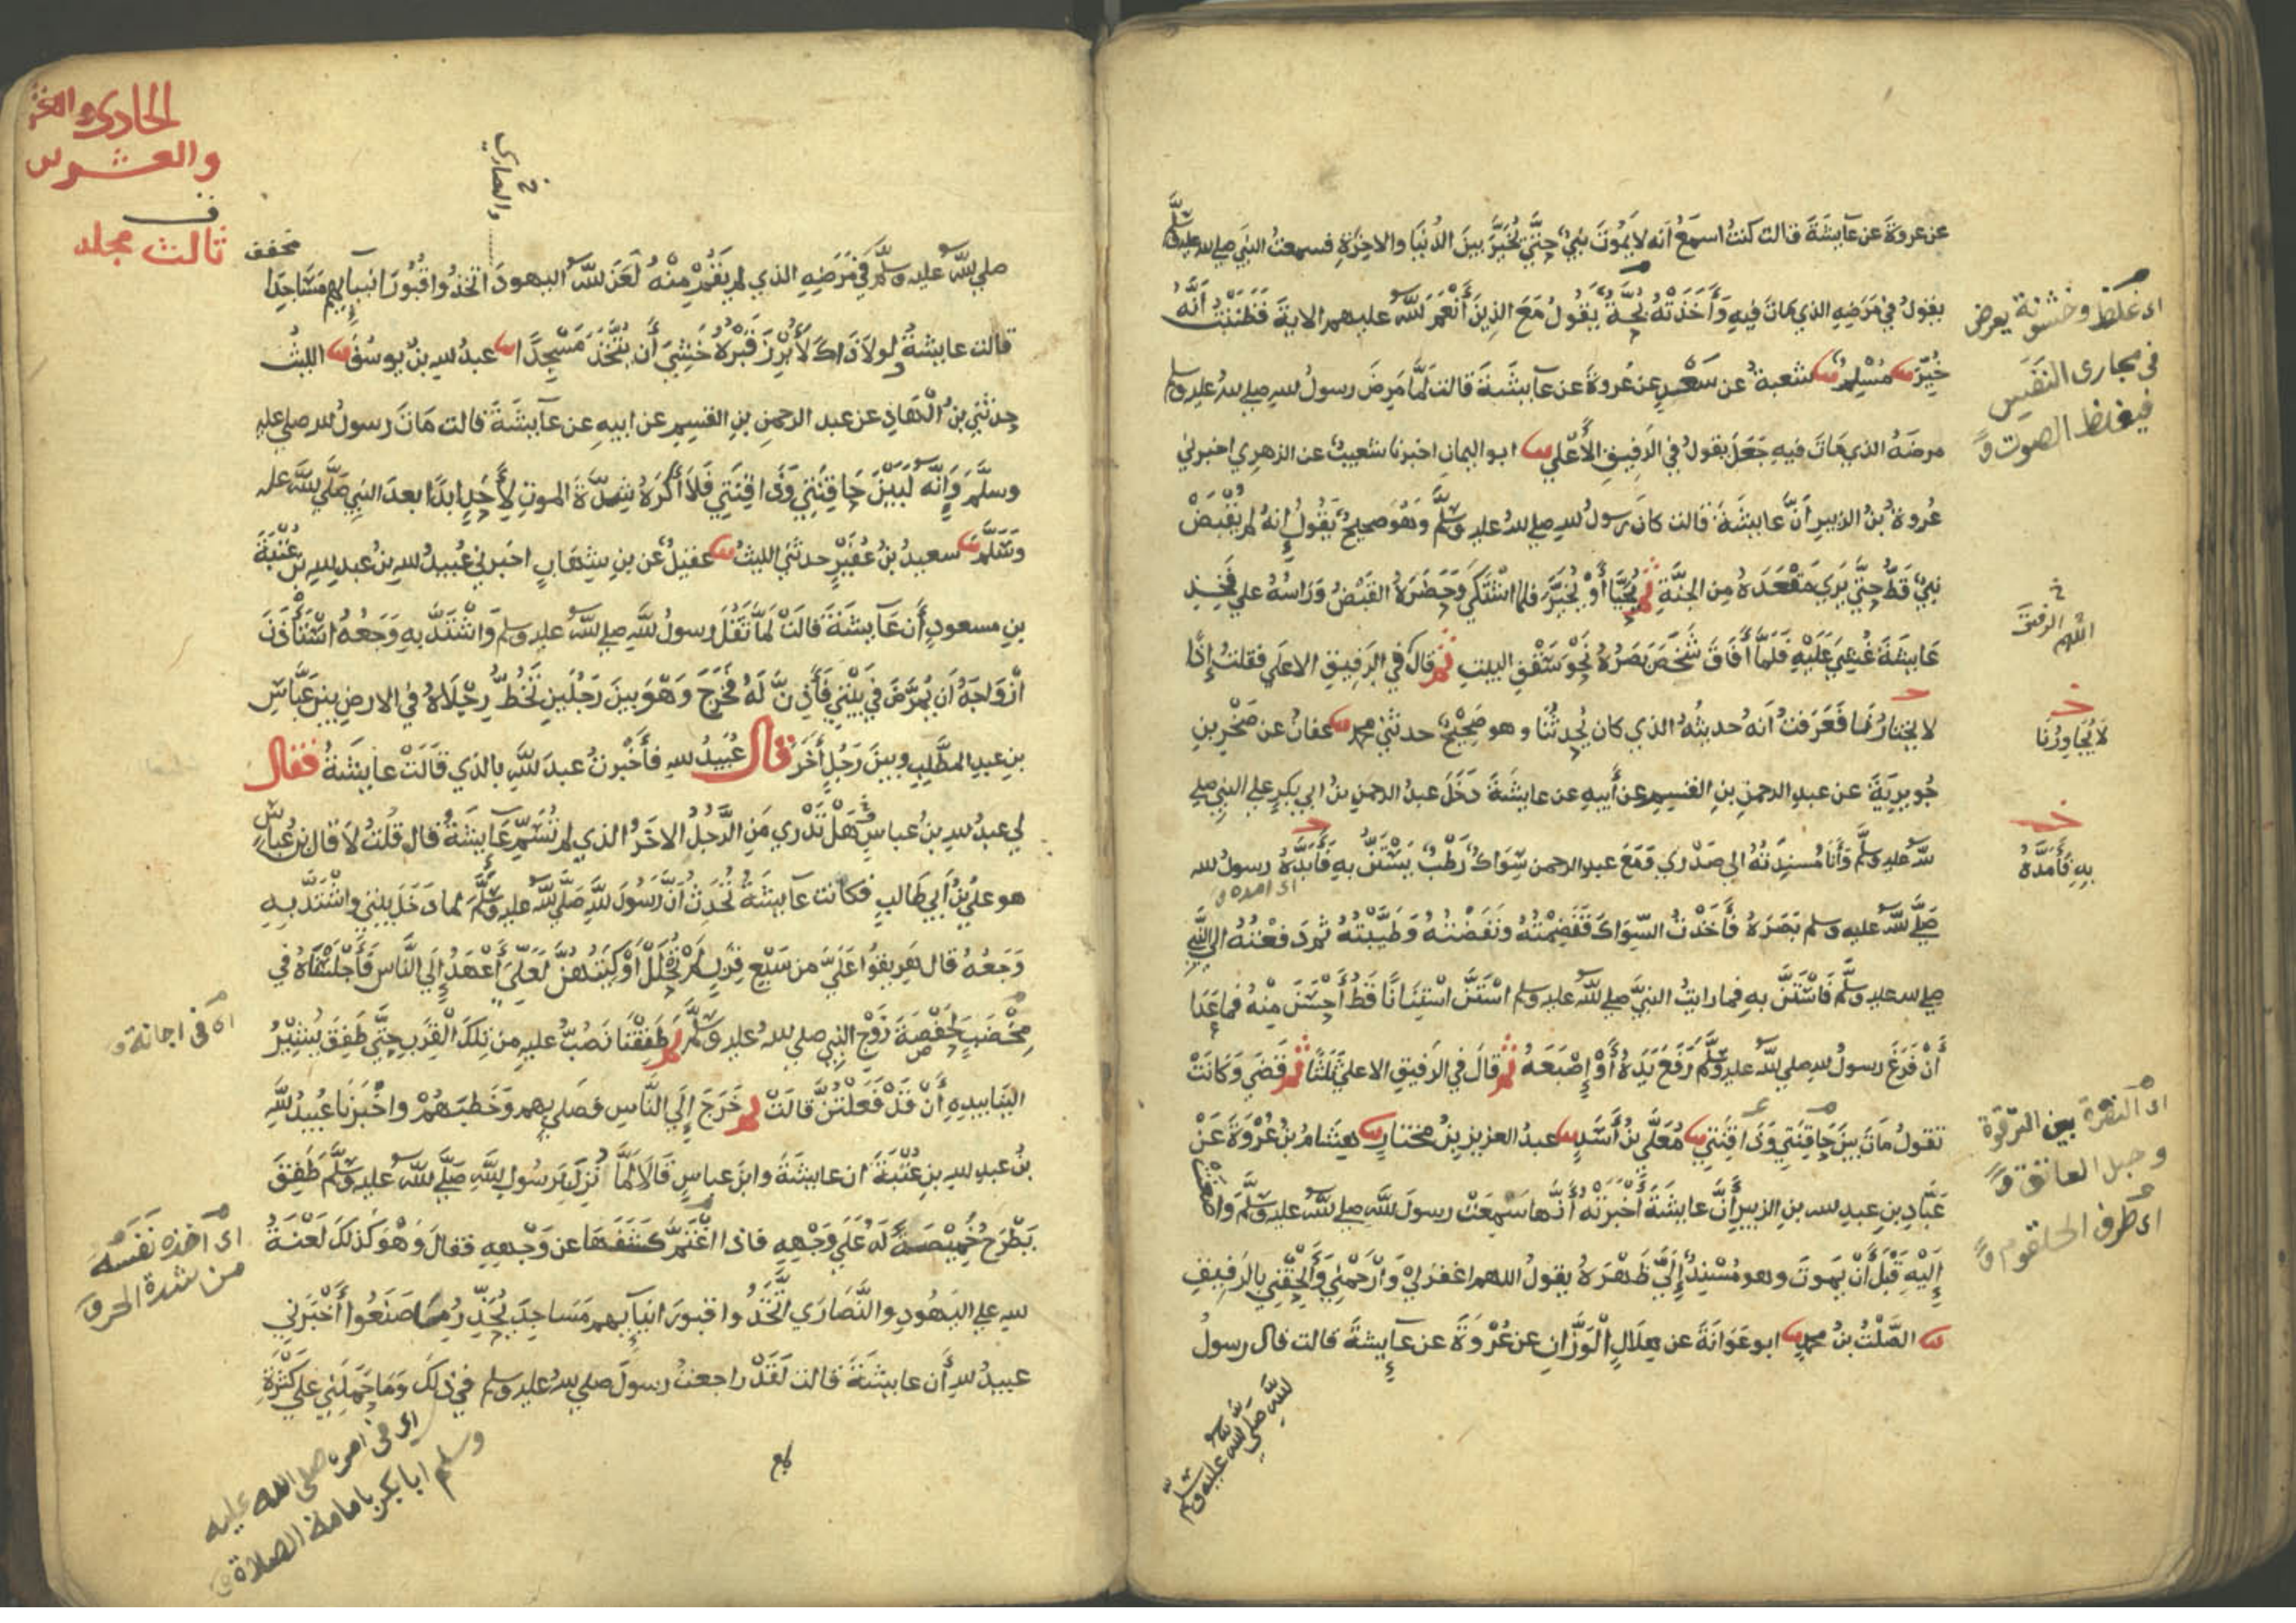 عن عروة عن عايشة قالت كنت اسمع انه لا يموت نبي حتى يخير بين الدنيا والاخرة فسمعت النبي صلى الله عليه وسلم
يقول في مرضه الذي مات فيه وأخذته بحة يقول مع الذين أنعم الله عليهم الاية فظننت أنه
خير مسلم شعبة عن سعد عن عروة عن عايشة قالت لما مرض رسول الله صلى الله عليه وسلم
مرضه الذي مات فيه جعل يقول في الرفيق الأعلى ابو اليمان اخبرنا شعيب عن الزهري اخبرني
عروة بن الزبير أن عايشة قالت كان رسول الله صلى الله عليه وسلم وهو صحيح يقول إنه لم يقبض
نبي قط حتى يرى مقعده من الجنة ثم يحيا أو يخير فلما اشتكى وحضره القبض وراسه على فخذ
عايشة غشي عليه فلما أفاق شخص بصره نحو سقف البيت ثم قال في الرفيق الاعلى فقلت إذا
لا يختارنا فعرفت أنه حديثه الذي كان يحدثنا وهو صحيح حدثني محمد عفان عن صخر بن
جويرية عن عبد الرحمن بن القسم عن أبيه عن عايشة دخل عبد الرحمن بن ابي بكر على النبي صلى
الله عليه وسلم وأنا مسندته الى صدري ومع عبد الرحمن سواك رطب يستن به فأبده رسول الله
صلى الله عليه وسلم بصره فأخذت السواك فقضمته ونفضته وطيبته ثم دفعته الى النبي
صلى الله عليه وسلم فاستن به فما رايت النبي صلى الله عليه وسلم استن استنانا قط أحسن منه فما عدا
أن فرغ رسول الله صلى الله عليه وسلم رفع يده أو إصبعه ثم قال في الرفيق الاعلى ثلثا ثم قضى وكانت
تقول مات بين حاقنتي وذاقنتي معلى بن أسد عبد العزيز بن مختار هشام بن عروة عن
عباد بن عبد الله بن الزبير أن عايشة أخبرته أنها سمعت رسول الله صلى الله عليه وسلم واصغت
إليه قبل أن يموت وهو مسند إلي ظهره يقول اللهم اغفر لي وارحمني وألحقني بالرفيق
الصلت بن محمد ابو عوانة عن هلال الوزان عن عروة عن عايشة قالت قال رسول
الله صلى الله عليه وسلم
اى غلظ وخشونة يعرض
فى مجارى النفس
فيغلظ الصوت
اللهم الرفيق
لا يجاورنا
به فأمده
اى النقرة بين الترقوة
وحبل العاتق
اى طرف الحلقوم
الحادى
والعشرين
ثالث مجلد
والنصارى
صلى الله عليه وسلم في مرضه الذي لم يقم منه لعن الله اليهود اتخذوا قبور انبيايهم مساجدا
قالت عايشة ولولا ذاك لأبرز قبره خشي أن يتخذ مسجدا عبد الله بن يوسف الليث
حدثني بن الهاد عن عبد الرحمن بن القسم عن ابيه عن عايشة قالت مات رسول الله صلى عليه
وسلم وإنه لبين حاقنتي وذاقنتي فلا أكره شدة الموت لأحد ابدا بعد النبي صلى الله عليه
وسلم سعيد بن عفير حدثني الليث عقيل عن بن شهاب اخبرني عبيد الله بن عبد الله بن عتبة
بن مسعود أن عايشة قالت لما ثقل رسول الله صلى الله عليه وسلم واشتد به وجعه استأذن
ازواجه أن يمرض في بيتي فأذن له فخرج وهو بين رجلين تخط رجلاه في الارض بين عباس
بن عبد المطلب وبين رجل أخر قال عبيد الله فأخبرت عبد الله بالذي قالت عايشة فقال
لي عبد الله بن عباس هل تدري من الرجل الاخر الذي لم تسم عايشة قال قلت لا قال بن عباس
هو علي بن أبي طالب فكانت عايشة تحدث أن رسول الله صلى الله عليه وسلم لما دخل بيتي واشتد به
وجعه قال هريقوا علي من سبع قرب لم تحلل أوكيتهن لعلي أعهد إلى الناس فأجلسناه في
مخضب لحفصة زوج النبي صلى الله عليه وسلم ثم طفقنا نصب عليه من تلك القرب حتى طفق يشير
الينا بيده أن قد فعلتن قالت ثم خرج إلى الناس فصلى بهم وخطبهم واخبرنا عبيد الله
بن عبد الله بن عتبة ان عايشة وابن عباس قالا لما نزل برسول الله صلى الله عليه وسلم طفق
يطرح خميصة له على وجهه فاذا اغتم كشفها عن وجهه فقال وهو كذلك لعنة
الله على اليهود والنصارى اتخذوا قبور انبيايهم مساجد يحذر ما صنعوا أخبرني
عبيد الله أن عايشة قالت لقد راجعت رسول صلى الله عليه وسلم في ذلك وما حملني على كثرة
اى فى اجانة
اى آخذه نفسه
من شدة الحر
اى فى امره صلى الله عليه
وسلم ابا بكر بامامة الصلاة